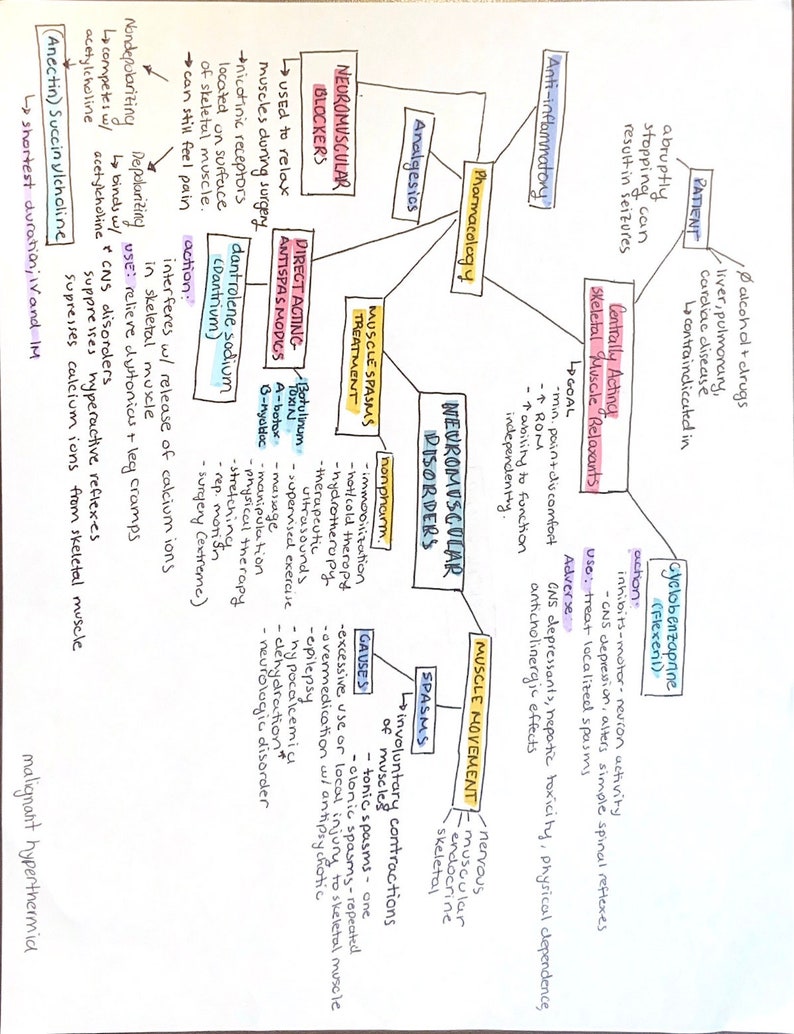 NEUROMUSCULAR
DISORDERS
MUSCLE MOVEMENT
nervous
muscular
endocrine
skeletal
SPASMS
↳ involuntary contractions
of muscles
- tonic spasms - one
- clonic spasms - repeated
CAUSES
- excessive use or local injury to skeletal muscle
- overmedication w/ antipsychotic
- epilepsy
- hypocalcemia
- dehydration*
- neurologic disorder
MUSCLE SPASMS
TREATMENT
nonpharm.
- immobilization
- hot/cold therapy
- hydrotherapy
- therapeutic
ultrasounds
- supervised exercise
- massage
- manipulation
- physical therapy
- stretching
- rep. motion
- surgery (extreme)
Pharmacology
Anti-inflammatory
Analgesics
Centrally Acting
Skeletal Muscle Relaxants
↳ GOAL
- min. pain + discomfort
- ↑ ROM
- ↑ ability to function
independently.
PATIENT
∅ alcohol + drugs
liver, pulmonary,
cardiac disease
↳ contraindicated in
abruptly
stopping can
result in seizures
cyclobenzaprine
(Flexeril)
action:
inhibits motor-neuron activity
- CNS depression, alters simple spinal reflexes
use: treat localized spasms
Adverse:
CNS depressants, hepatic toxicity, physical dependence,
anticholinergic effects
NEUROMUSCULAR
BLOCKERS
↳ used to relax
muscles during surgery
→ nicotinic receptors
located on surface
of skeletal muscle.
→ can still feel pain
Nondepolarizing
↳ competes w/
acetylcholine
Depolarizing
↳ binds w/
acetylcholine
(Anectin) Succinylcholine
↳ shortest duration, IV and IM
DIRECT ACTING-
ANTISPASMODICS
Botulinum
TOXIN
A - botox
B - myobloc
dantrolene sodium
(Dantrium)
action:
interferes w/ release of calcium ions
in skeletal muscle
use: relieve dystonias + leg cramps
* CNS disorders
suppresses hyperactive reflexes
supresses calcium ions from skeletal muscle
malignant hyperthermia